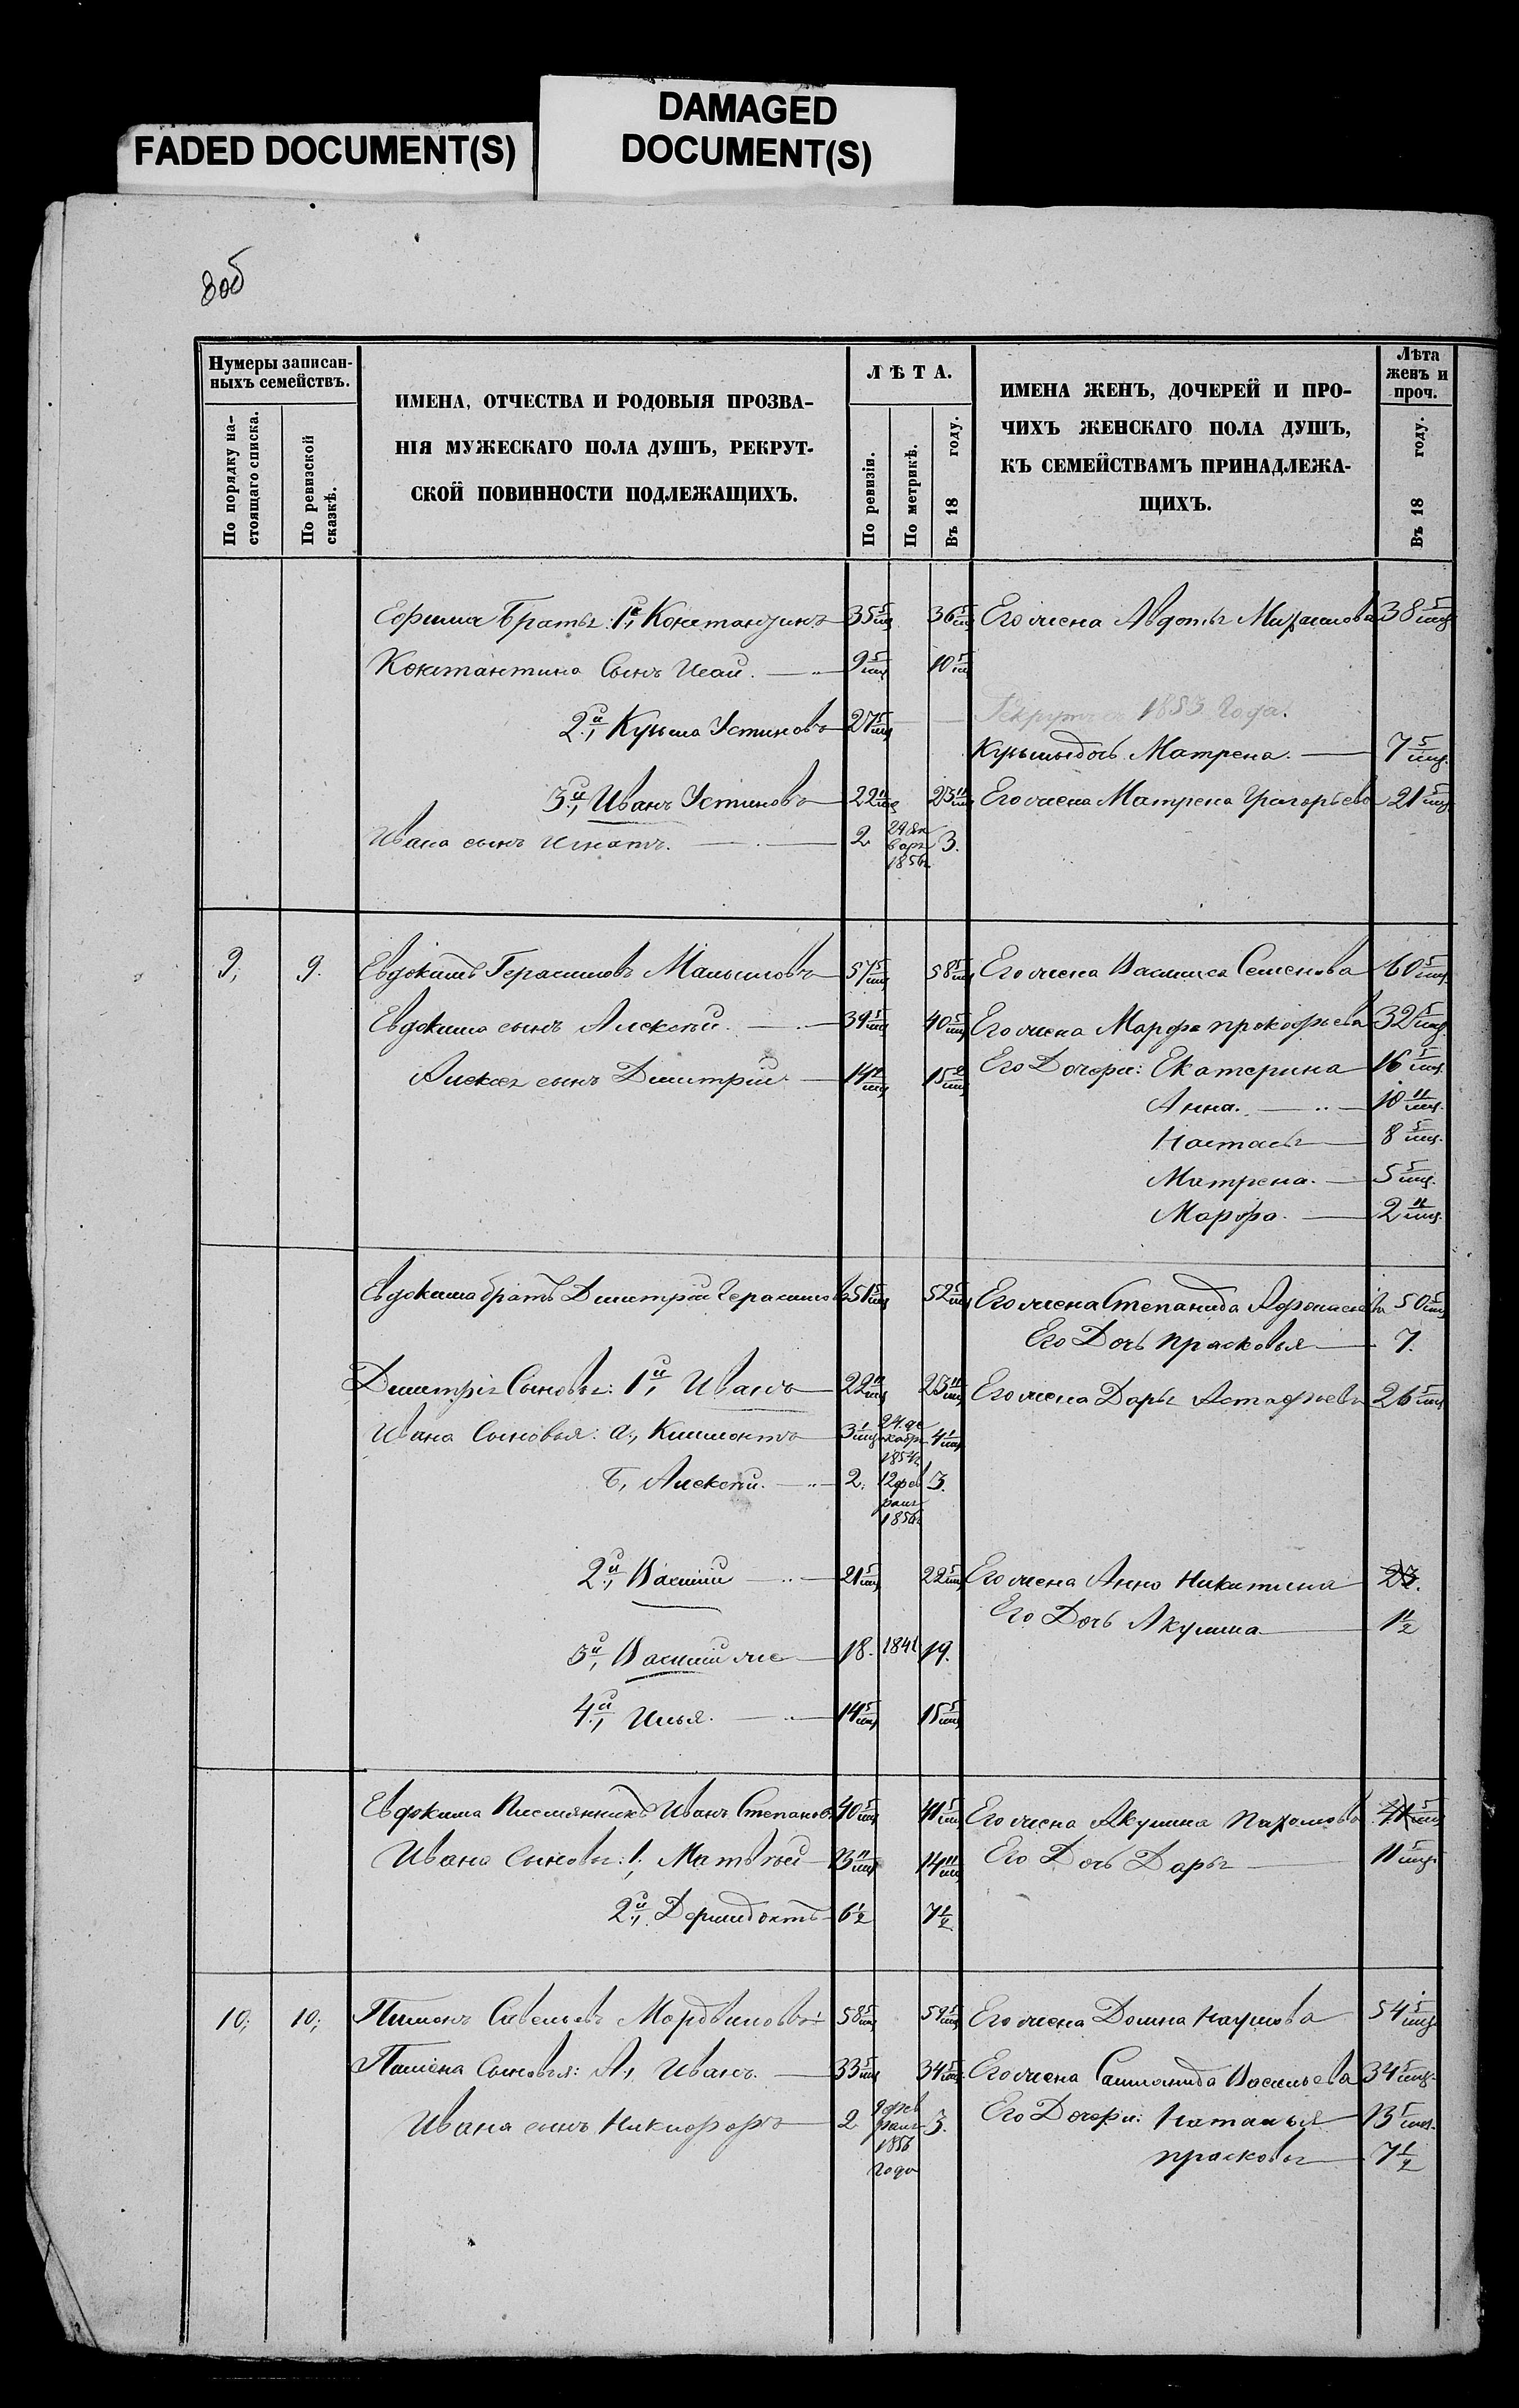 FADED DOCUMENT(S)
DAMAGED
DOCUMENT(S)
8об
Нумеры записан-
ныхъ семействъ.
По порядку на-
стоящаго списка.
По ревизской
сказкѣ.
ИМЕНА, ОТЧЕСТВА И РОДОВЫЯ ПРОЗВА-
НІЯ МУЖЕСКАГО ПОЛА ДУШЪ, РЕКРУТ-
СКОЙ ПОВИННОСТИ ПОДЛЕЖАЩИХЪ.
ЛѢТА.
По ревизіи.
По метрикѣ.
Въ 18 году.
ИМЕНА ЖЕНЪ, ДОЧЕРЕЙ И ПРО-
ЧИХЪ ЖЕНСКАГО ПОЛА ДУШЪ,
КЪ СЕМЕЙСТВАМЪ ПРИНАДЛЕЖА-
ЩИХЪ.
Лѣта
женъ и
проч.
Въ 18 году.
Ефима Братья: 1й, Констан­тинъ 35 5/мц 36 5/мц Его жена Авдотья 38 5/мц
Константина Сынъ Исай. 9 5/мц 10 5/мц
2й, Кузьма Устиновъ 27 5/мц Рекрутъ 1853 Года.
Кузьмы дочь Матрена. 7 5/мц.
3й, Иванъ Устиновъ 22 11/мц 23 11/мц Его жена Матрена Григорьева 21 5/мц
Ивана сынъ Игнатъ. 2 29 Ян
варя
1856г. 3.
9, 9. Евдокимъ Герасимовъ 57 5/мц 58 5/мц Его жена Василиса Семенова 60 5/мц
Евдокима сынъ Алексѣй. 39 5/мц 40 5/мц Его жена Марфа Прокофьева 32 5/мц.
Алексея сынъ Димитрій. 14 2/мц 15 2/мц Его Дочери: Екатерина 16 5/мц.
Анна. 10 11/мц.
Настасья 8 5/мц.
Матрена. 5 5/мц.
Марфа. 2 11/мц.
Евдокима братъ Димитрій Герасимовъ 51 5/мц 52 5/мц Его жена Степанида Афонасьева 50 5/мц
Его Дочь Прасковья 7.
Димитрія Сыновья: 1й, Иванъ 22 11/мц 23 11/мц Его жена Дарья Астафьева 26 5/мц
Ивана Сыновья: а, Климонтъ 3 1/мц 24 де
кабря
1854г. 4 1/мц
б, Алексѣй. 2. 12 фев
раля
1856г. 3.
2й, Василий 21 5/мц 22 5/мц Его жена Анна Никитина
Его Дочь Акулина 1 1/2
3й, Василий же 18. 1841 19.
4й, Илья. 14 5/мц 15 5/мц
Евдокима Племянникъ Иванъ Степановъ 40 5/мц 41 5/мц Его жена Акулина Пахомова 41 5/мц
Ивана Сыновья: 1, Матвѣй 13 11/мц 14 11/мц Его Дочь Дарья 11 5/мц.
2й, 6 1/2 7 1/2
10; 10; Пименъ Савельевъ Мордвиновъ 58 5/мц 59 5/мц Его жена Домна Наумова 54 5/мц
Пимена Сыновья: А, Иванъ. 33 5/мц 34 5/мц Его жена Васильева 34 5/мц.
Ивана сынъ Никифоръ 2 9 фев
раля
1856
года 3. Его Дочери: Наталья 13 5/мц.
Прасковья 7 1/2